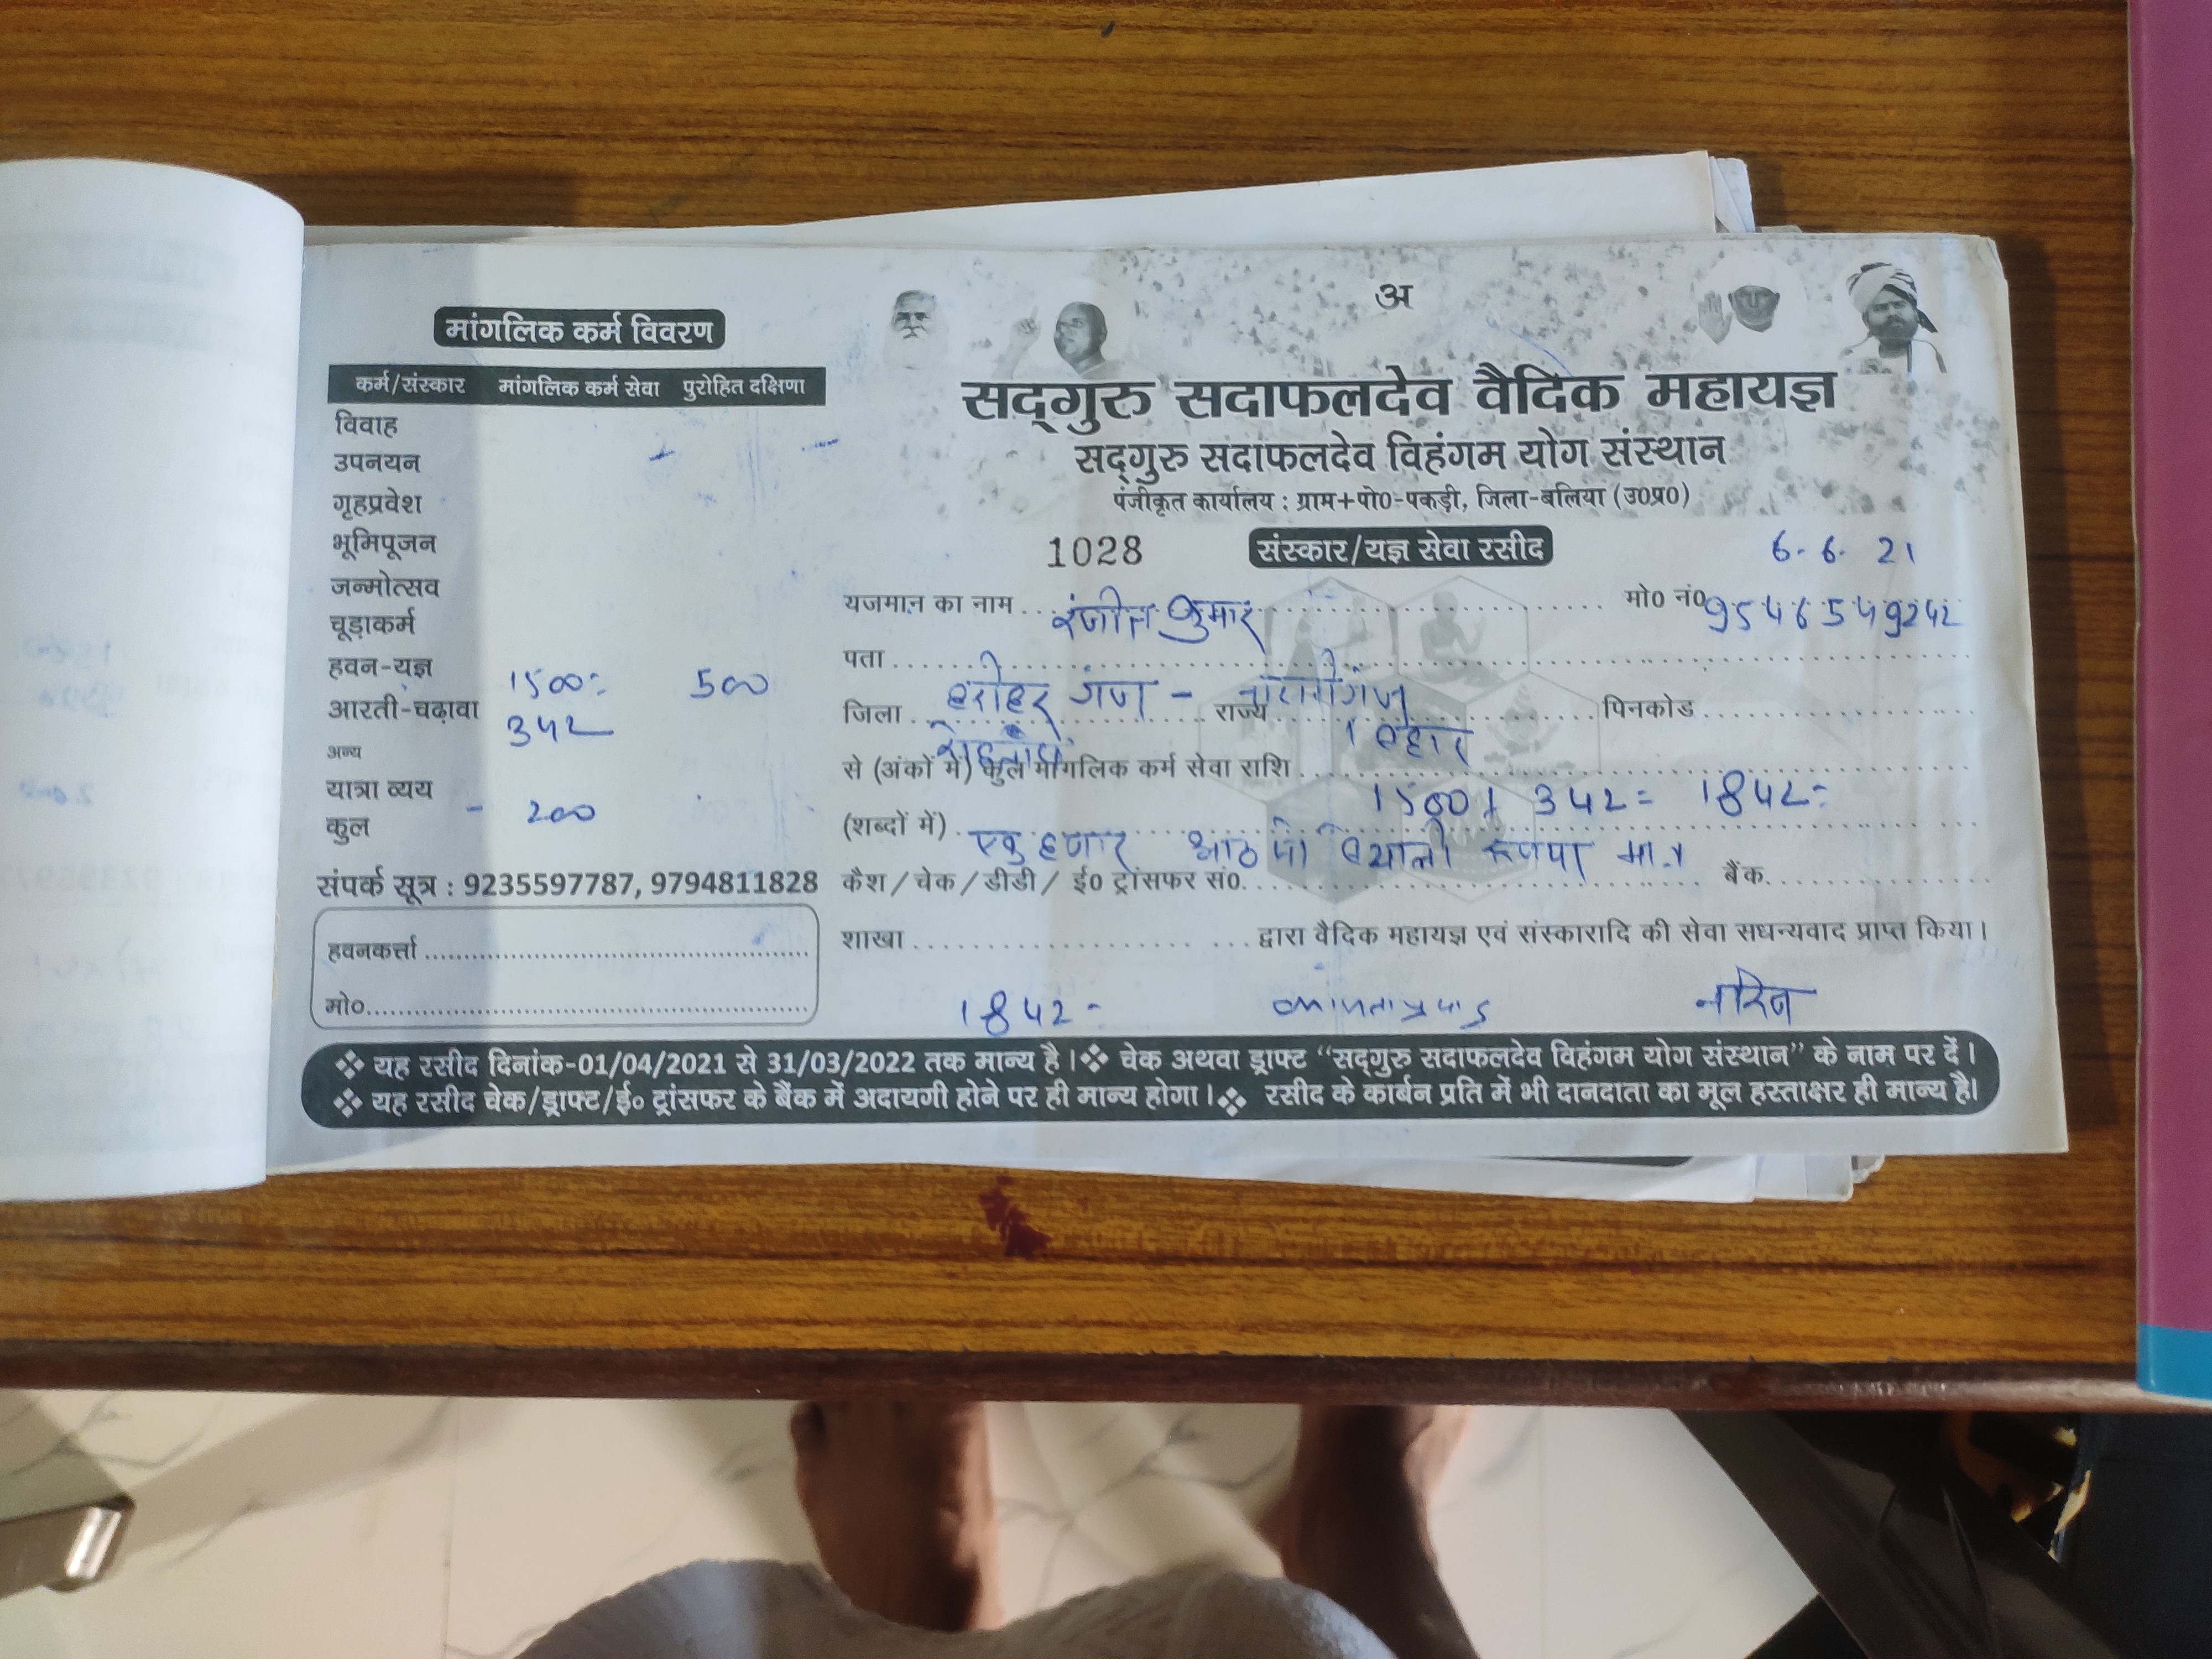 अ
मांगलिक कर्म विवरण
कर्म/संस्कार मांगलिक कर्म सेवा पुरोहित दक्षिणा
विवाह
उपनयन
गृहप्रवेश
भूमिपूजन
जन्मोत्सव
चूड़ाकर्म
हवन-यज्ञ 1500= 500
आरती-चढ़ावा 342
अन्य
यात्रा व्यय
कुल - 200
संपर्क सूत्र : 9235597787, 9794811828
हवनकर्त्ता
मो०
सद्गुरु सदाफलदेव वैदिक महायज्ञ
सद्गुरु सदाफलदेव विहंगम योग संस्थान
पंजीकृत कार्यालय : ग्राम+पो०-पकड़ी, जिला-बलिया (उ०प्र०)
1028 संस्कार/यज्ञ सेवा रसीद 6-6-21
यजमान का नाम रंजीत कुमार मो० नं० 9546549242
पता
जिला गंज - राज्य पिनकोड
रोहतास बिहार
से (अंकों में) कुल मांगलिक कर्म सेवा राशि 1500+342= 1842=
(शब्दों में) एक हजार आठ सौ बयाली रूपया मात्र
कैश/चेक/डीडी/ ई० ट्रांसफर सं० बैंक
शाखा द्वारा वैदिक महायज्ञ एवं संस्कारादि की सेवा सधन्यवाद प्राप्त किया।
1842-
❖ यह रसीद दिनांक-01/04/2021 से 31/03/2022 तक मान्य है।❖ चेक अथवा ड्राफ्ट “सद्गुरु सदाफलदेव विहंगम योग संस्थान” के नाम पर दें।
❖ यह रसीद चेक/ड्राफ्ट/ई० ट्रांसफर के बैंक में अदायगी होने पर ही मान्य होगा।❖ रसीद के कार्बन प्रति में भी दानदाता का मूल हस्ताक्षर ही मान्य है।